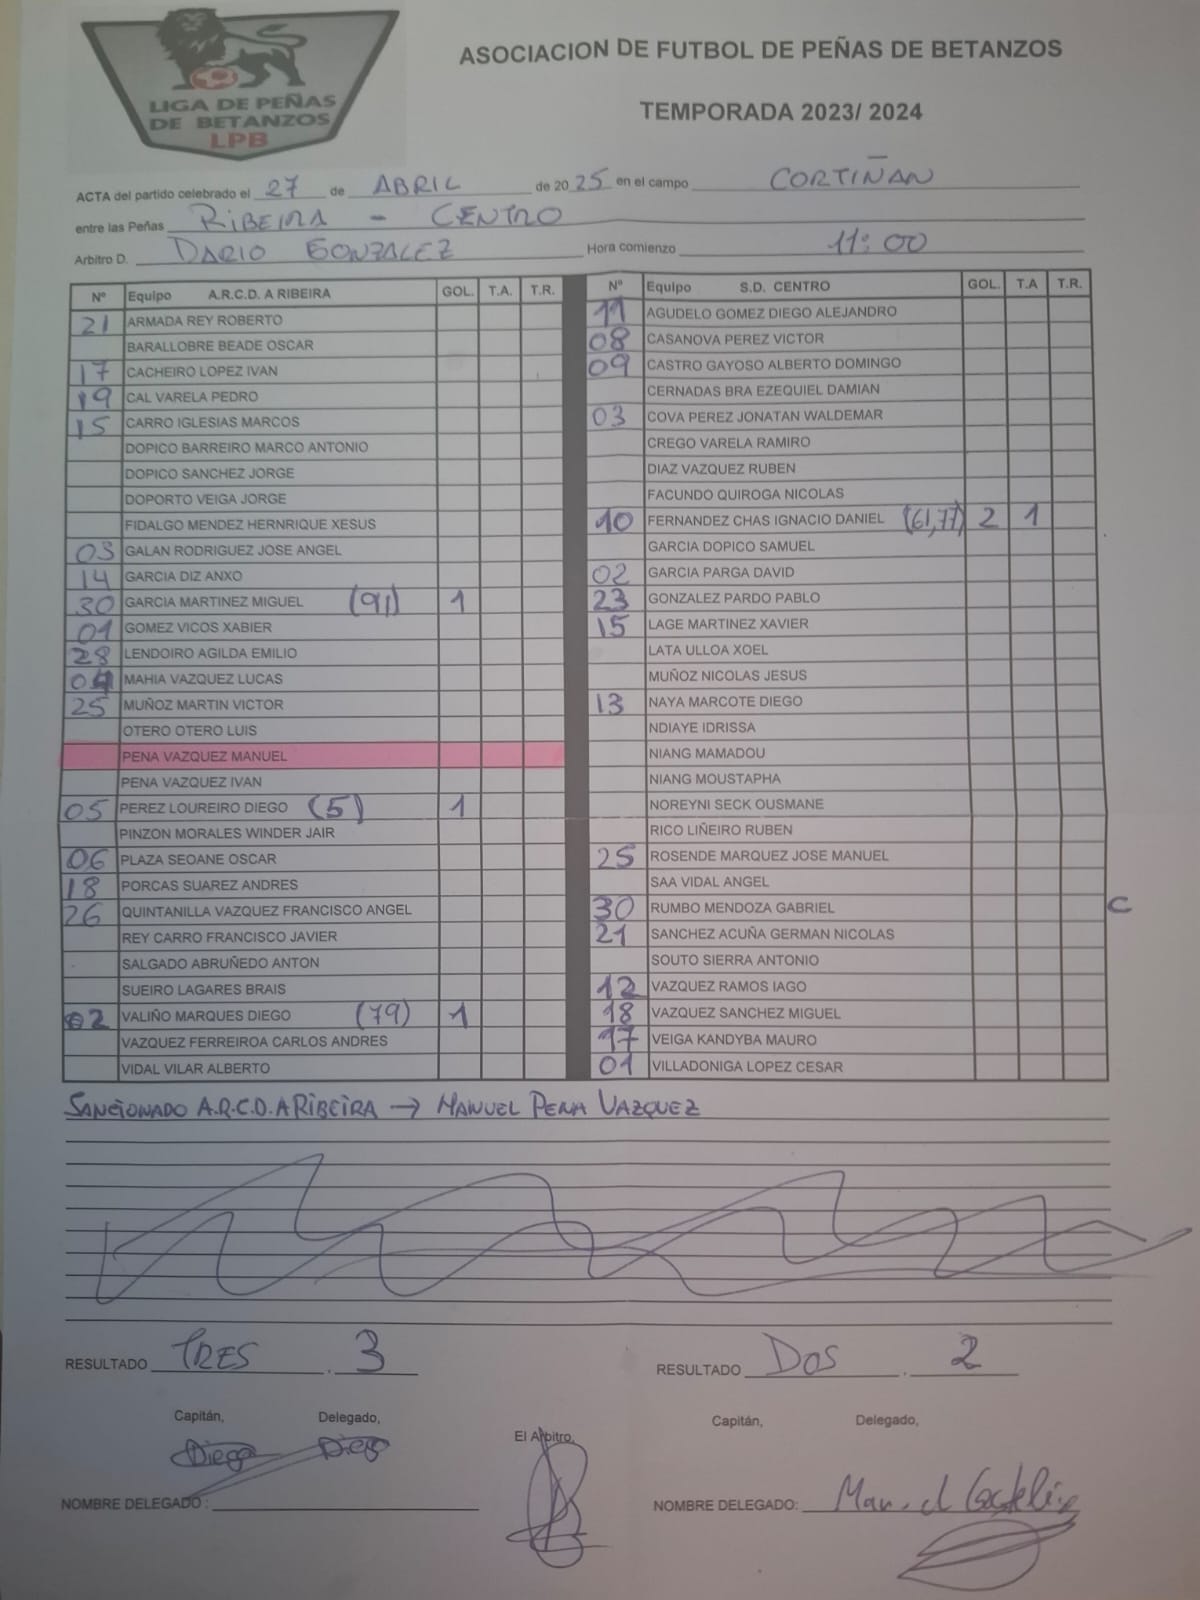 LIGA DE PEÑAS
DE BETANZOS
LPB
ASOCIACION DE FUTBOL DE PEÑAS DE BETANZOS
TEMPORADA 2023/ 2024
ACTA del partido celebrado el 27 de ABRIL de 2025 en el campo CORTIÑAN
entre las Peñas RIBEIRA - CENTRO
Arbitro D. DARIO GONZALEZ Hora comienzo 11:00
Nº Equipo A.R.C.D. A RIBEIRA GOL. T.A. T.R.
21 ARMADA REY ROBERTO
BARALLOBRE BEADE OSCAR
17 CACHEIRO LOPEZ IVAN
19 CAL VARELA PEDRO
15 CARRO IGLESIAS MARCOS
DOPICO BARREIRO MARCO ANTONIO
DOPICO SANCHEZ JORGE
DOPORTO VEIGA JORGE
FIDALGO MENDEZ HERNRIQUE XESUS
03 GALAN RODRIGUEZ JOSE ANGEL
14 GARCIA DIZ ANXO
30 GARCIA MARTINEZ MIGUEL (91) 1
01 GOMEZ VICOS XABIER
28 LENDOIRO AGILDA EMILIO
04 MAHIA VAZQUEZ LUCAS
25 MUÑOZ MARTIN VICTOR
OTERO OTERO LUIS
PENA VAZQUEZ MANUEL
PENA VAZQUEZ IVAN
05 PEREZ LOUREIRO DIEGO (5) 1
PINZON MORALES WINDER JAIR
06 PLAZA SEOANE OSCAR
18 PORCAS SUAREZ ANDRES
26 QUINTANILLA VAZQUEZ FRANCISCO ANGEL
REY CARRO FRANCISCO JAVIER
SALGADO ABRUÑEDO ANTON
SUEIRO LAGARES BRAIS
02 VALIÑO MARQUES DIEGO (79) 1
VAZQUEZ FERREIROA CARLOS ANDRES
VIDAL VILAR ALBERTO
Nº Equipo S.D. CENTRO GOL. T.A T.R.
11 AGUDELO GOMEZ DIEGO ALEJANDRO
08 CASANOVA PEREZ VICTOR
09 CASTRO GAYOSO ALBERTO DOMINGO
CERNADAS BRA EZEQUIEL DAMIAN
03 COVA PEREZ JONATAN WALDEMAR
CREGO VARELA RAMIRO
DIAZ VAZQUEZ RUBEN
FACUNDO QUIROGA NICOLAS
10 FERNANDEZ CHAS IGNACIO DANIEL (61,77) 2 1
GARCIA DOPICO SAMUEL
02 GARCIA PARGA DAVID
23 GONZALEZ PARDO PABLO
15 LAGE MARTINEZ XAVIER
LATA ULLOA XOEL
MUÑOZ NICOLAS JESUS
13 NAYA MARCOTE DIEGO
NDIAYE IDRISSA
NIANG MAMADOU
NIANG MOUSTAPHA
NOREYNI SECK OUSMANE
RICO LIÑEIRO RUBEN
25 ROSENDE MARQUEZ JOSE MANUEL
SAA VIDAL ANGEL
30 RUMBO MENDOZA GABRIEL C
21 SANCHEZ ACUÑA GERMAN NICOLAS
SOUTO SIERRA ANTONIO
12 VAZQUEZ RAMOS IAGO
18 VAZQUEZ SANCHEZ MIGUEL
17 VEIGA KANDYBA MAURO
01 VILLADONIGA LOPEZ CESAR
SANCIONADO A.R.C.D. A RIBEIRA → MANUEL PENA VAZQUEZ
RESULTADO TRES . 3
RESULTADO DOS . 2
Capitán, Delegado,
Diego Diego
El Arbitro,
Capitán, Delegado,
NOMBRE DELEGADO :
NOMBRE DELEGADO: